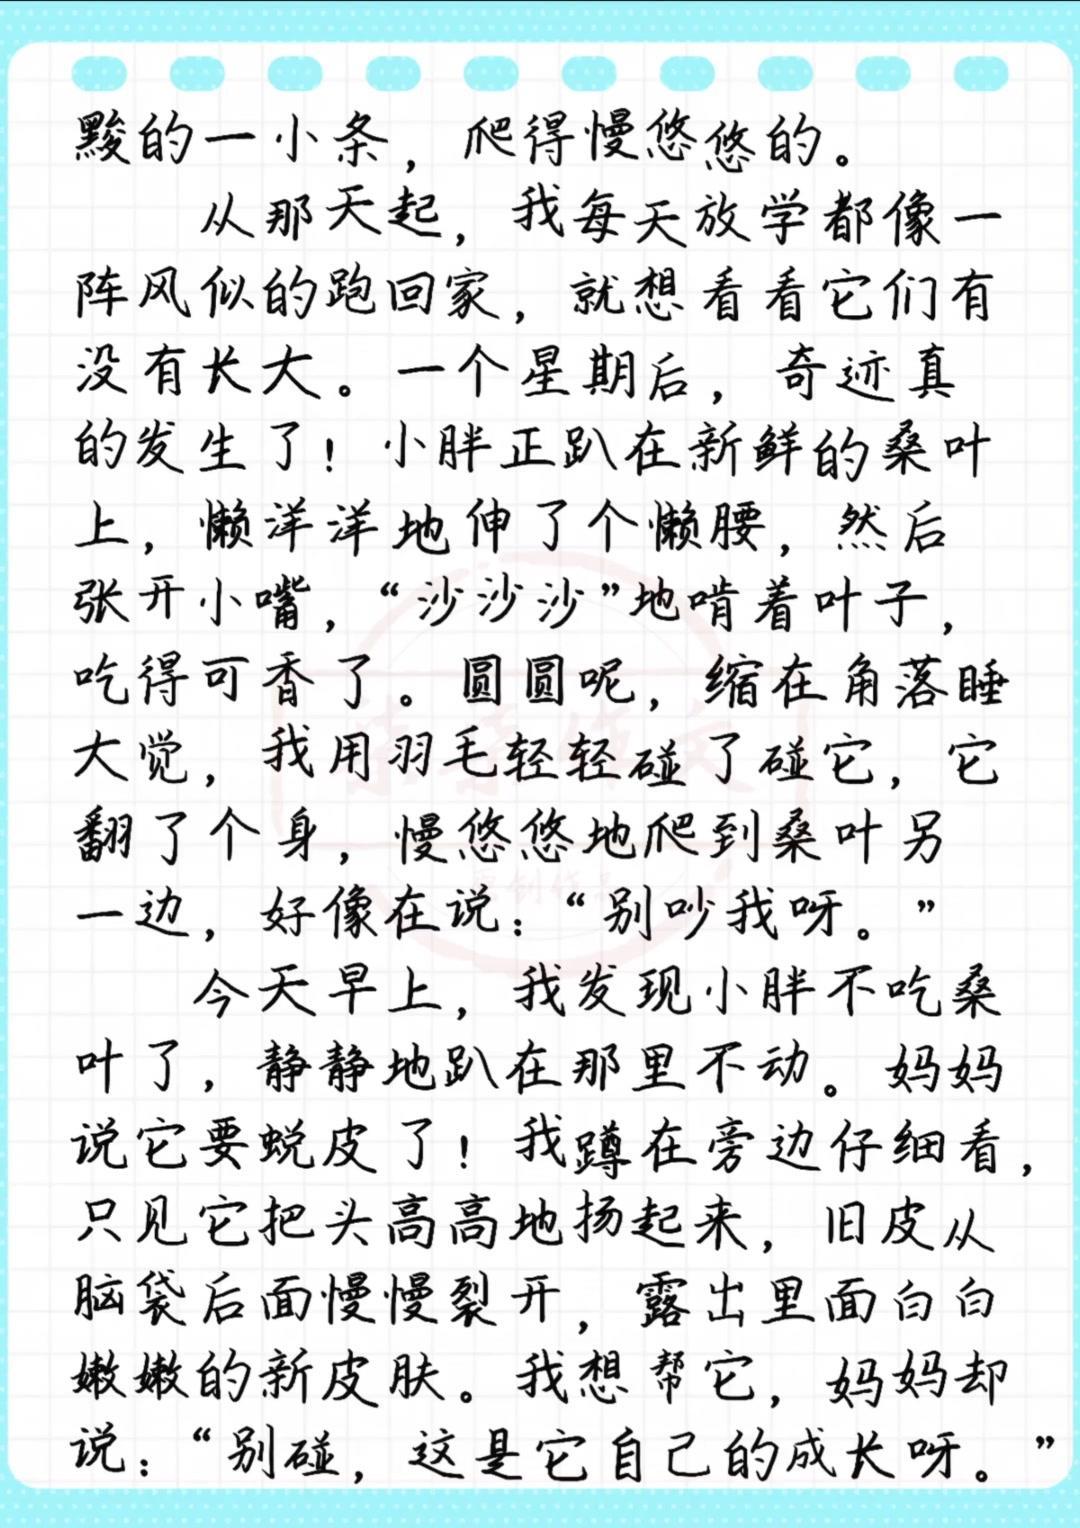 黢的一小条，爬得慢悠悠的。
从那天起，我每天放学都像一
阵风似的跑回家，就想看看它们有
没有长大。一个星期后，奇迹真
的发生了！小胖正趴在新鲜的桑叶
上，懒洋洋地伸了个懒腰，然后
张开小嘴，“沙沙沙”地啃着叶子，
吃得可香了。圆圆呢，缩在角落睡
大觉，我用羽毛轻轻碰了碰它，它
翻了个身，慢悠悠地爬到桑叶另
一边，好像在说：“别吵我呀。”
今天早上，我发现小胖不吃桑
叶了，静静地趴在那里不动。妈妈
说它要蜕皮了！我蹲在旁边仔细看，
只见它把头高高地扬起来，旧皮从
脑袋后面慢慢裂开，露出里面白白
嫩嫩的新皮肤。我想帮它，妈妈却
说：“别碰，这是它自己的成长呀。”